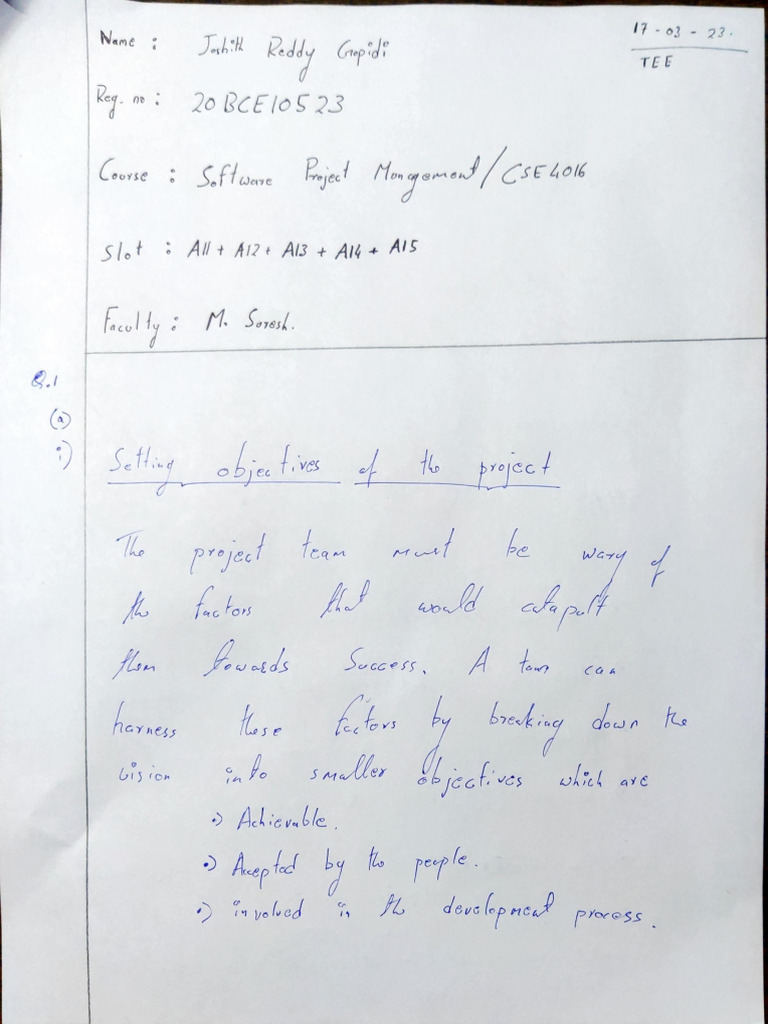 17-03-23.
TEE
Name : Joshith Reddy Gopidi
Reg. no : 20BCE10523
Course : Software Project Management/CSE4016
Slot : A11 + A12 + A13 + A14 + A15
Faculty : M. Suresh.
Q.1
(a)
i) Setting objectives of the project
The project team must be wary of
the factors that would catapult
them towards success. A team can
harness these factors by breaking down the
vision into smaller objectives which are
•) Achievable.
•) Accepted by the people.
•) involved in the development process.